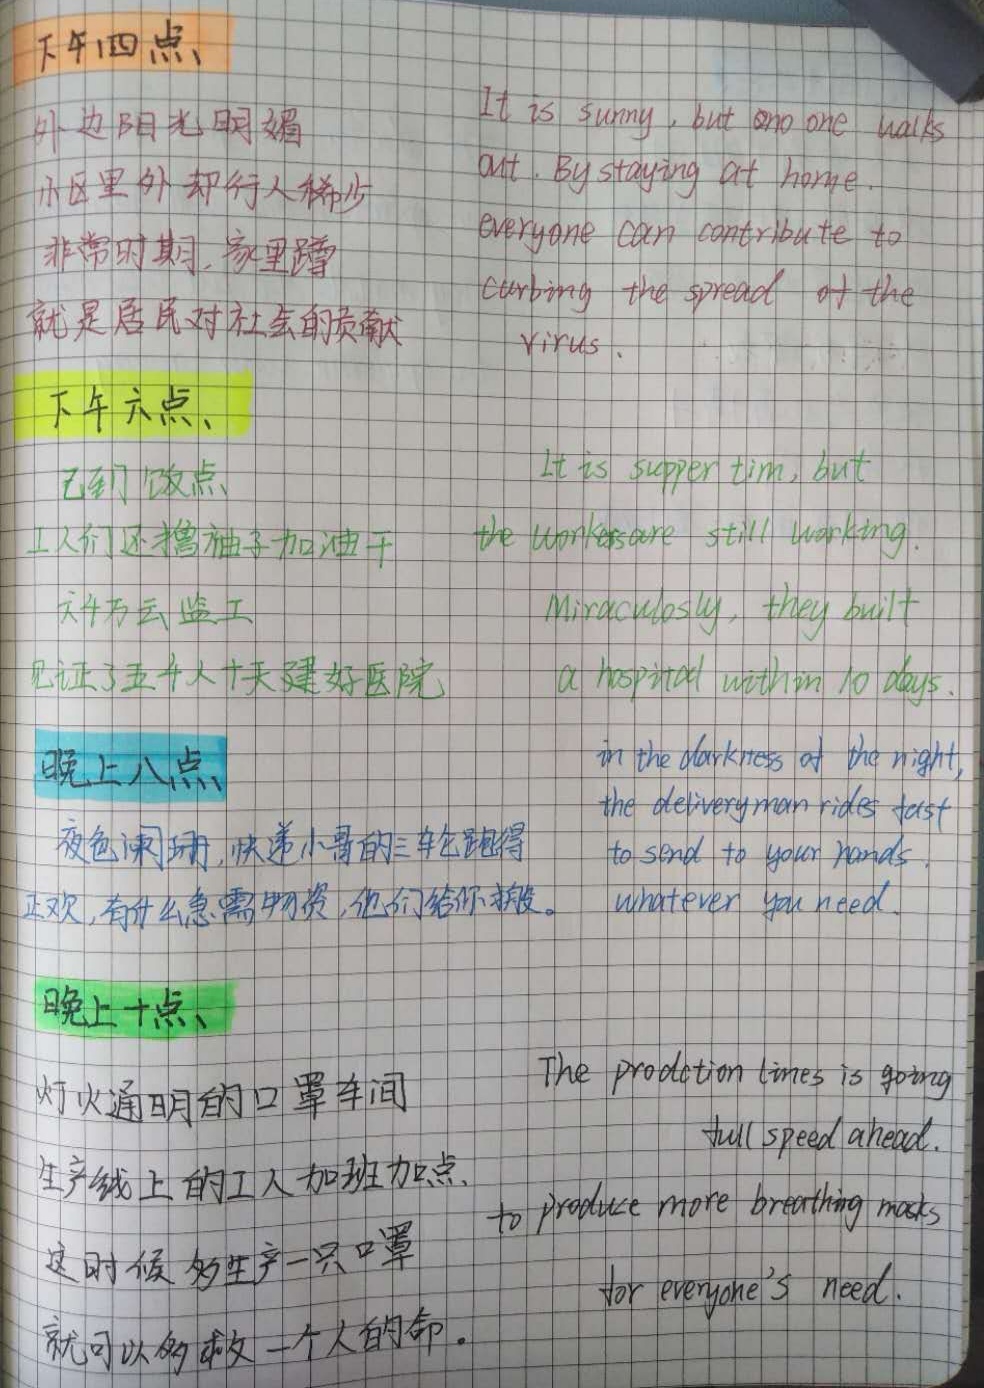 下午四点、
外边阳光明媚
小区里外却行人稀少
非常时期,家里蹲
就是居民对社会的贡献
It is sunny, but no one walks
out. By staying at home.
everyone can contribute to
curbing the spread of the
virus.
下午六点、
已到饭点、
工人们还撸袖子加油干
六千万云监工
见证了五千人十天建好医院
It is supper tim, but
the workers are still working.
Miraculosly, they built
a hospital within 10 days.
晚上八点、
夜色阑珊,快递小哥的三轮跑得
正欢,有什么急需物资,他们给你搬。
in the darkness of the night,
the deliveryman rides fast
to send to your hands.
whatever you need.
晚上十点、
灯火通明的口罩车间
生产线上的工人加班加点、
这时候多生产一只口罩
就可以多救一个人的命。
The prodction limes is going
full speed ahead.
to produce more breathing masks
for everyone's need.